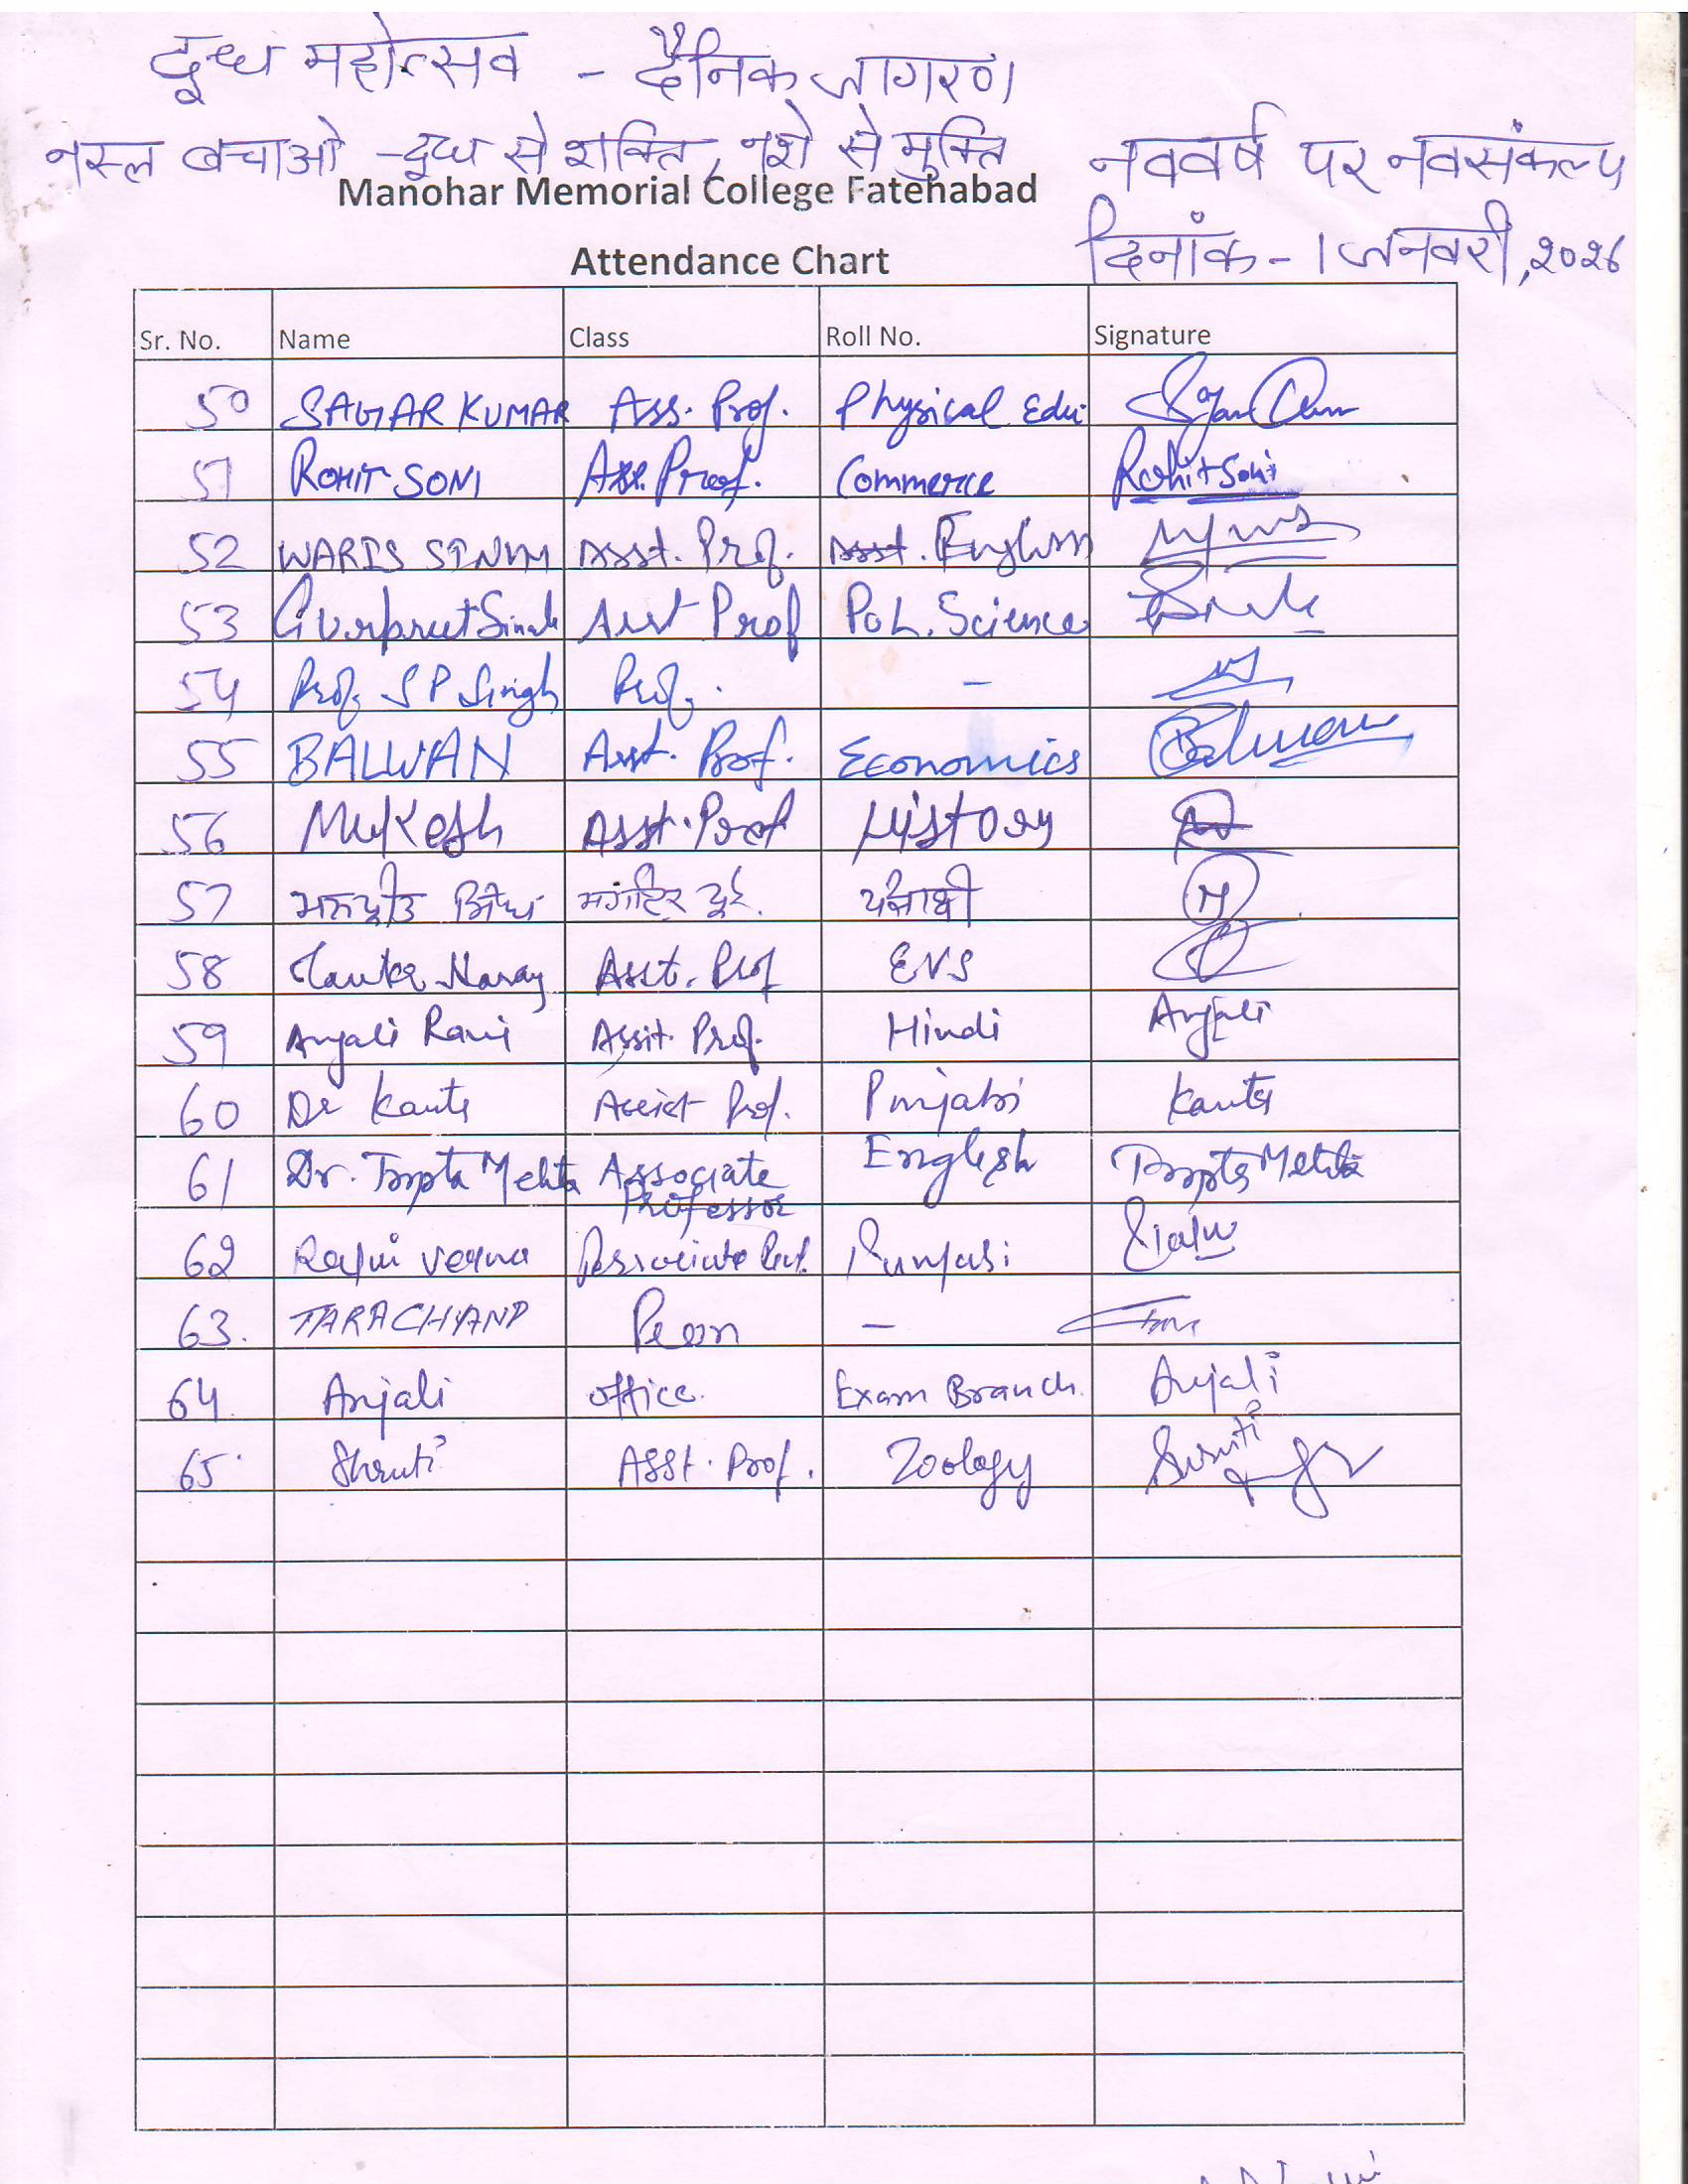 दूध महोत्सव - दैनिक जागरण
नस्ल बचाओ - दूध से शक्ति, नशे से मुक्ति
नववर्ष पर नवसंकल्प
Manohar Memorial College Fatehabad
दिनांक - 1 जनवरी, २०२६
Attendance Chart
Sr. No. Name Class Roll No. Signature
50 SAGAR KUMAR Ass. Prof. Physical Edu.
51 ROHIT SONI Ass. Prof. Commerce Rohit Soni
52 WARIS SINGH Asst. Prof. English
53 Gurpreet Singh Asst Prof Pol. Science
54 Prof. S P Singh Prof. -
55 BALWAN Asst. Prof. Economics Balwan
56 Mukesh Asst. Prof History
57 ਮਨਪ੍ਰੀਤ ਸਿੰਘ ਪੰਜਾਬੀ
58 Asst. Prof EVS
59 Anjali Rani Assit. Prof. Hindi Anjali
60 Dr Kanta Assist Prof. Punjabi Kanta
61 Dr. Tripta Mehta Associate Professor English Tripta Mehta
62 Rajni Verma Associate Prof. Punjabi
63. TARACHAND Peon -
64. Anjali office. Exam Branch. Anjali
65. Shruti Asst. Prof. Zoology Shruti